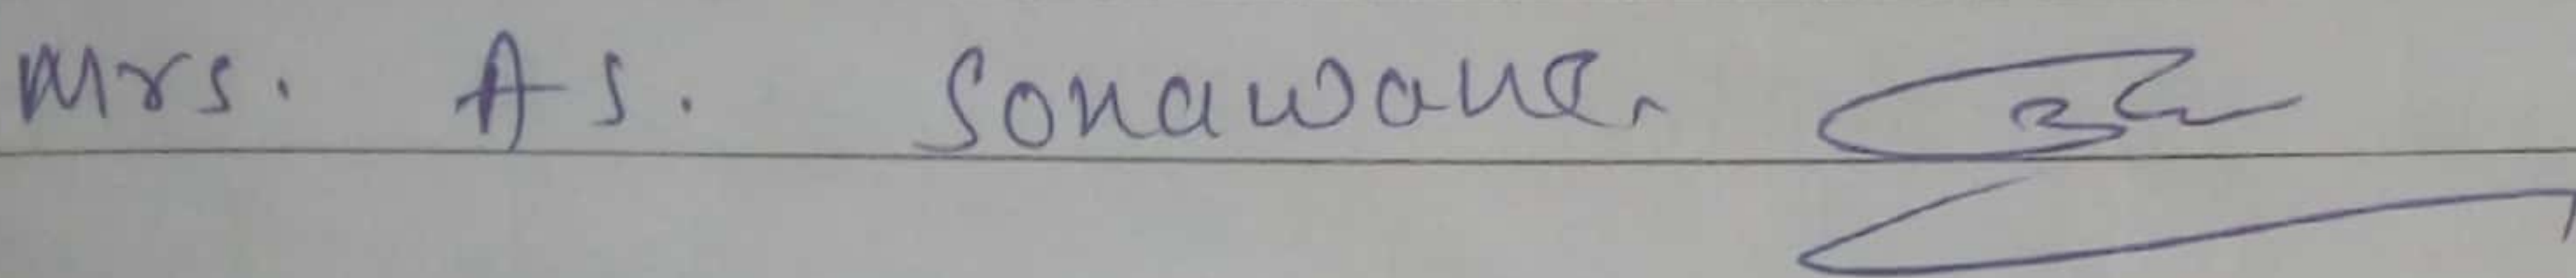 Mrs. A S. Sonawane.